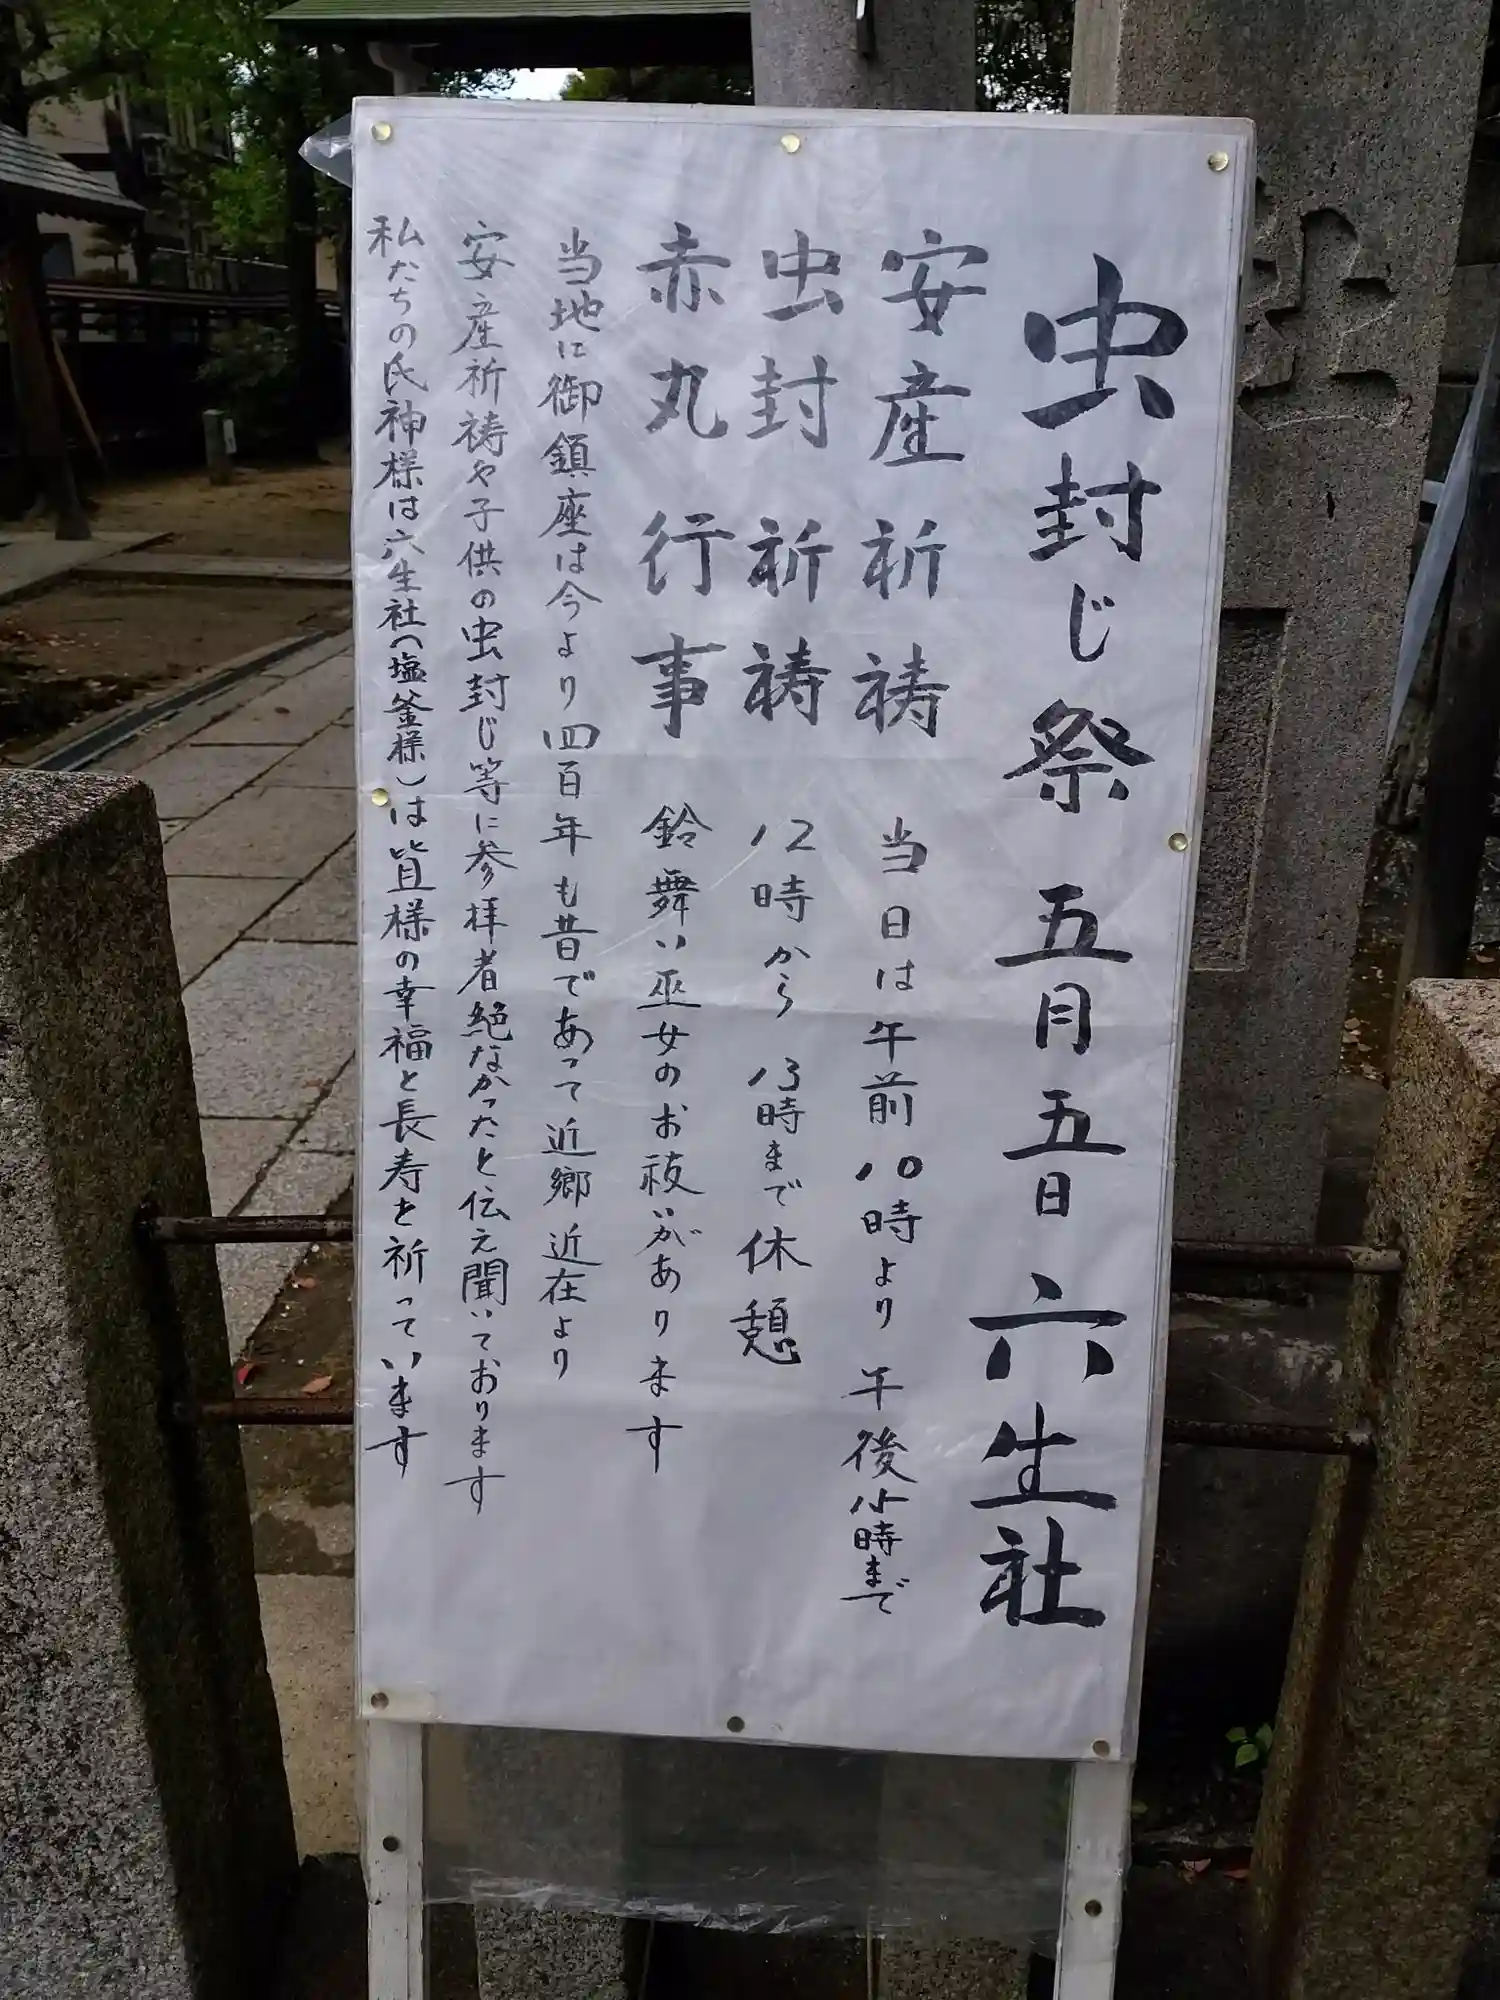 虫封じ祭 五月五日 六生社
安産祈祷 当日は午前10時より午後 時まで
虫封祈祷 12時から 13時まで休憩
赤丸行事 鈴舞い巫女のお祓いがあります
当地に御鎮座は今より四百年も昔であって近郷近在より
安産祈祷や子供の虫封じ等に参拝者絶なかったと伝え聞いております
私たちの氏神様は六生社(塩釜様)は皆様の幸福と長寿を祈っています